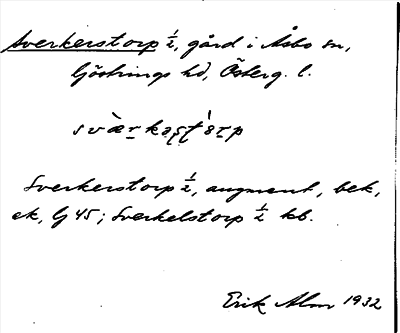 Sverkerstorp ½, gård i Åsbo sn,
Göstrings hd, Österg. l.
Sverkerstorp ½, augment, bek,
ek, G 45; Sverkelstorp ½ kb.
Erik Alm 1932